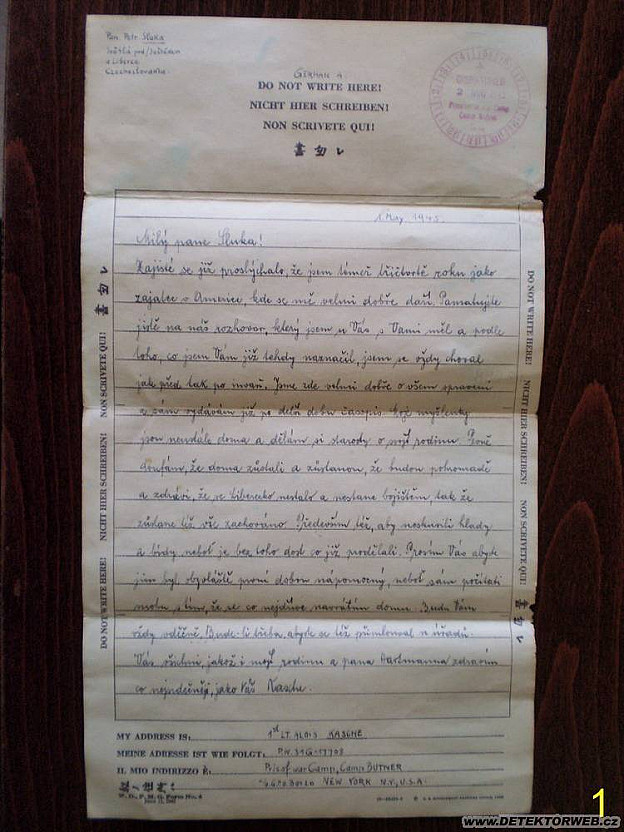 Pan Petr Sluka
Světlá pod Ještědem
u Liberce
Czechoslovakia
GERMAN A.
DO NOT WRITE HERE!
NICHT HIER SCHREIBEN!
NON SCRIVETE QUI!
1 May 1945.
Milý pane Sluka!
Zajisté se již proslýchalo, že jsem téměř třičtvrtě roku jako
zajatec v Americe, kde se mě velmi dobře daří. Pamatujte
jistě na náš rozhovor, který jsem u Vás s Vámi měl a podle
toho, co jsem Vám již tehdy naznačil, jsem se vždy choval
jak před tak po mém. Jsme zde velmi dobře o všem zpraveni
a sám vydávám již po delší dobu časopis. Moje myšlenky
jsou neustále doma a dělám si starosti o svojí rodinu. Pevně
doufám, že doma zůstali a zůstanou, že budou pohromadě
a zdrávi, že se Liberecko nestalo a nestane bojištěm, tak že
zůstane též vše zachováno. Především též, aby neskusili hlady
a bídy, neboť je bez toho dost co již prodělali. Prosím Vás abyste
jim byl obzvláště první dobou nápomocný, neboť sám počítati
mohu s tím, že se co nejdříve navrátím domu. Budu Vám
vždy vděčně. Bude-li třeba, abyste se též přimlouval u úřadů.
Vás všechni, jakož i moji rodinu a pana Hartmanna zdravím
co nejsrdečněji, jako Váš Kasche.
DO NOT WRITE HERE! NICHT HIER SCHREIBEN! NON SCRIVETE QUI!
DO NOT WRITE HERE! NICHT HIER SCHREIBEN! NON SCRIVETE QUI!
MY ADDRESS IS: 1st LT. ALOIS KASCHE
MEINE ADRESSE IST WIE FOLGT: P.W. 31G-17708
IL MIO INDIRIZZO È: Pris. of war Camp, Camp BUTNER
NEW YORK N.Y., U.S.A.
W. D., P. M. G. Form No. 4
1
WWW.DETEKTORWEB.CZ